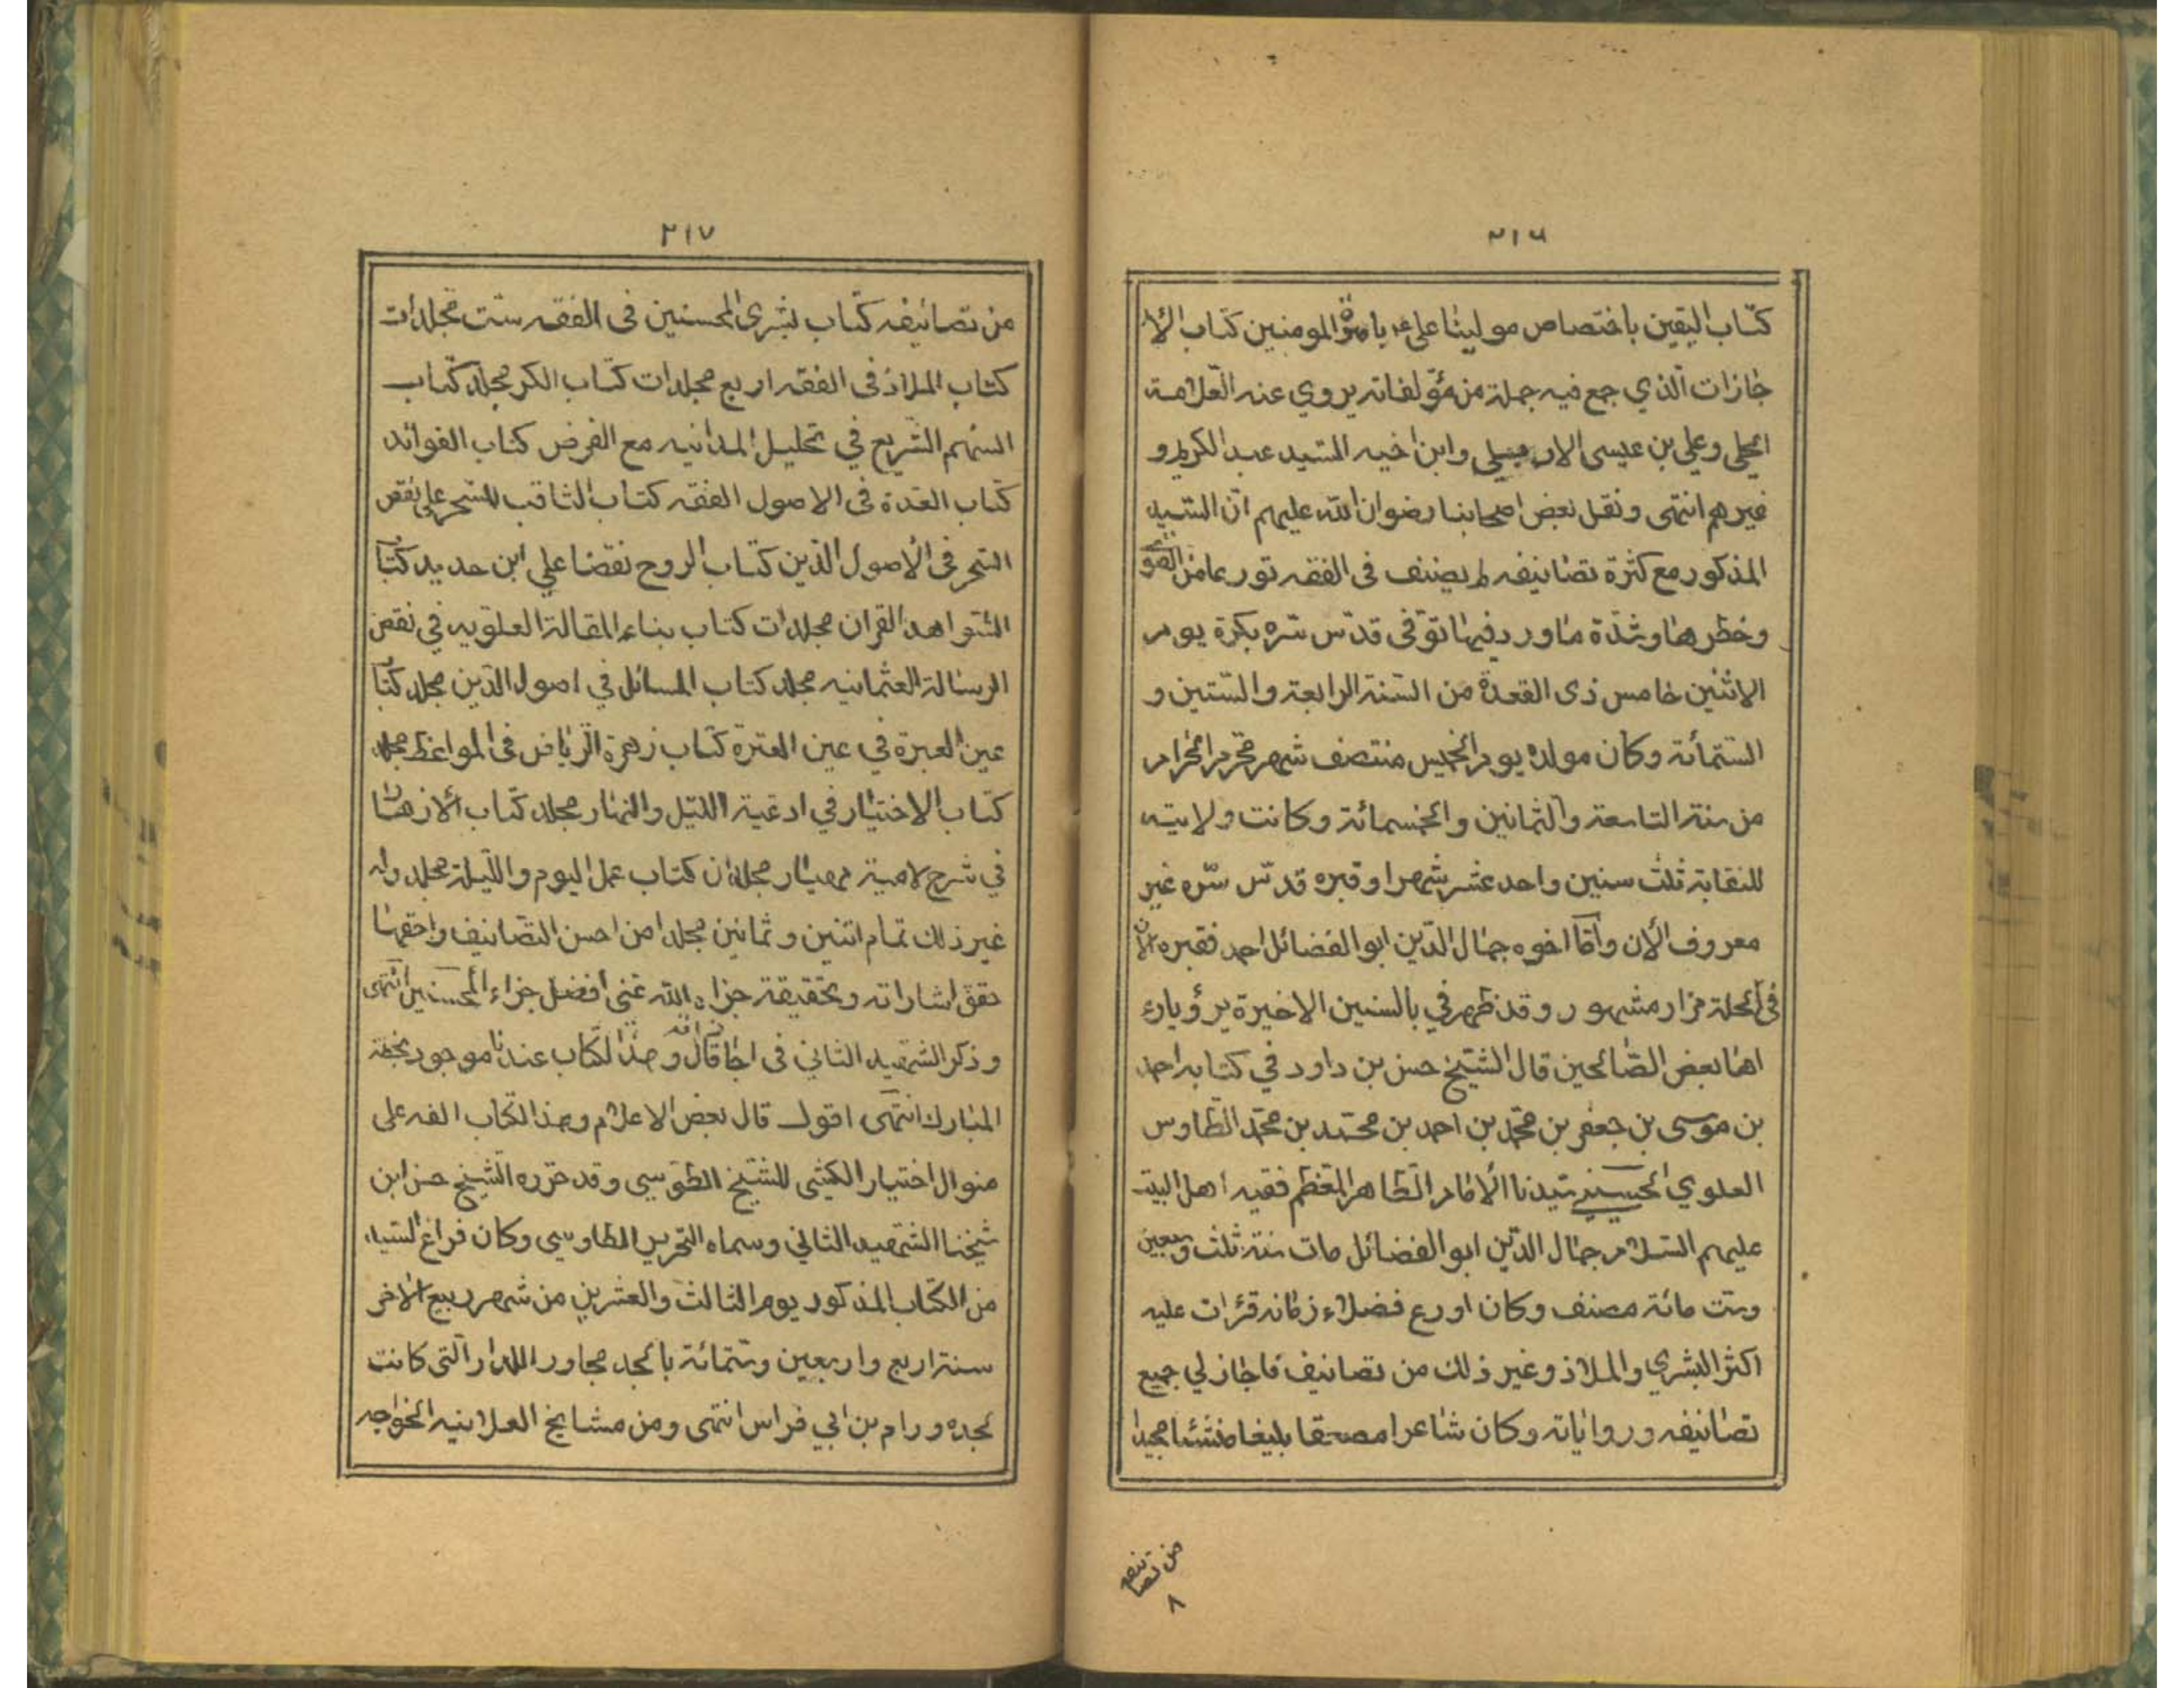 ٢١٦
كتاب اليقين باختصاص مولينا علي ع بامرة المومنين كتاب الا
جازات الذي جمع فيه جملة من مؤلفاته يروي عنه العلامة
الحلي وعلي بن عيسى الاربيلي وابن اخيه السيد عبد الكريم و
غيرهم انتهى ونقل بعض اصحابنا رضوان الله عليهم ان السيد
المذكور مع كثرة تصانيفه لم يصنف في الفقه تورعا من الفتوى
وخطرها وشدة ما ورد فيها توفي قدس سره بكرة يوم
الاثنين خامس ذي القعدة من السنة الرابعة والستين و
الستمائة وكان مولده يوم الخميس منتصف شهر محرم الحرام
من سنة التاسعة والثمانين والخمسمائة وكانت ولايته
للنقابة ثلث سنين واحد عشر شهرا وقبره قدس سره غير
معروف الآن وأما اخوه جمال الدين ابو الفضائل احمد فقبره الآن
في الحلة مزار مشهور وقد ظهر في بالسنين الاخيرة برؤيا رء
اها بعض الصالحين قال الشيخ حسن بن داود في كتابه احمد
بن موسى بن جعفر بن محمد بن احمد بن محمد بن محمد الطاوس
العلوي الحسيني سيدنا الامام الطاهر المعظم فقيه اهل البيت
عليهم السلام جمال الدين ابو الفضائل مات سنة ثلث وسبعين
وست مائة مصنف وكان اورع فضلاء زمانه قرئت عليه
اكثر البشري والملاذ وغير ذلك من تصانيف فاجاز لي جميع
تصانيفه ورواياته وكان شاعرا مصقعا بليغا منشئا مجيدا
من تصانيفه
٨
٢١٧
من تصانيفه كتاب بشرى المحسنين في الفقه ست مجلدات
كتاب الملاذ في الفقه اربع مجلدات كتاب الكر مجلد كتاب
السهم السريع في تحليل المداينه مع القرض كتاب الفوائد
كتاب العدة في الاصول الفقه كتاب الثاقب المسخر على نقض
المشجر في الأصول الدين كتاب الروح نقضا علي ابن حديد كتاب
الشواهد القران مجلدات كتاب بناء المقالة العلويه في نقض
الرسالة العثمانيه مجلد كتاب المسائل في اصول الدين مجلد كتاب
عين العبرة في عين العترة كتاب زهرة الرياض في المواعظ مجلد
كتاب الاختيار في ادعية الليل والنهار مجلد كتاب الأزهار
في شرح لامية مهيار مجلدان كتاب عمل اليوم والليلة مجلد وله
غير ذلك تمام اثنين وثمانين مجلدا من احسن التصانيف واحقها
حقق اشاراته وتحقيقة جزاه الله عني افضل جزاء المحسنين انتهى
وذكر الشهيد الثاني في اجازاته قال وهذا الكتاب عندنا موجود بخطه
المبارك انتهى اقول قال بعض الاعلام وهذا الكتاب الفه على
منوال اختيار الكشي للشيخ الطوسي وقد حرره الشيخ حسن ابن
شيخنا الشهيد الثاني وسماه التحرير الطاوسي وكان فراغ السيد
من الكتاب المذكور يوم الثالث والعشرين من شهر ربيع الآخر
سنة اربع واربعين وستمائة بالحد مجاور الدار التي كانت
لجده ورام بن ابي فراس انتهى ومن مشايخ العلانيه الخواجه